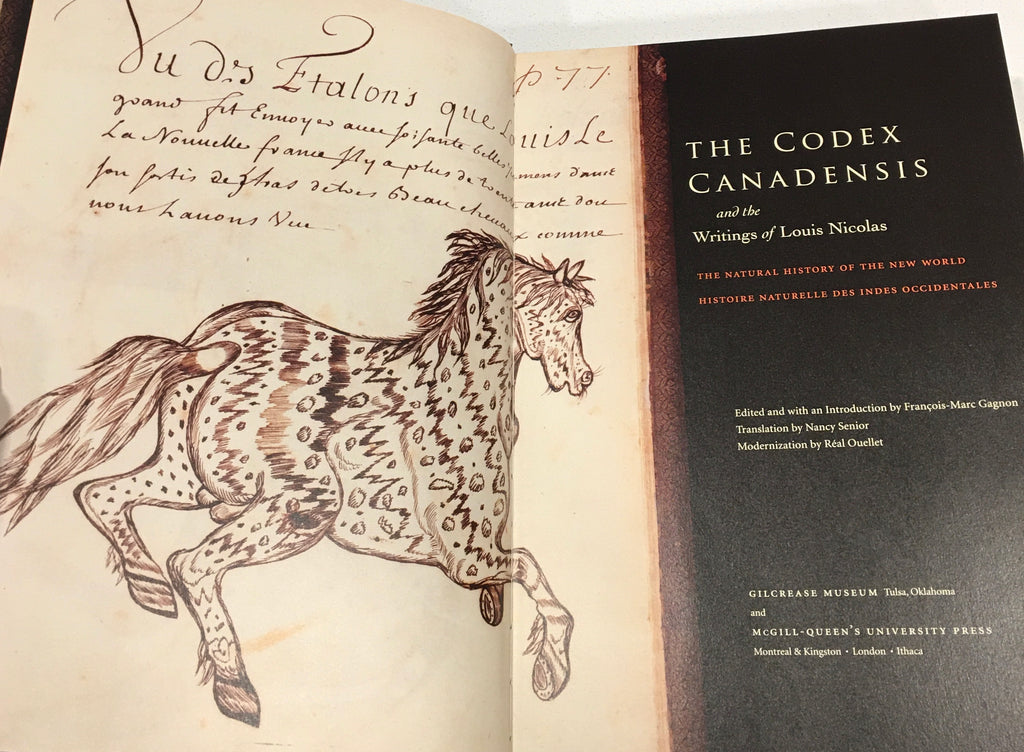 p 77.
Vu des Etalons que Louis Le
grand fit Ennoyer auec soisante belles
La Nouuelle france Il y a plus de ans dou
son sortis de Beau cheuaux comme
nous Lauons Veu
THE CODEX
CANADENSIS
and the
Writings of Louis Nicolas
THE NATURAL HISTORY OF THE NEW WORLD
HISTOIRE NATURELLE DES INDES OCCIDENTALES
Edited and with an Introduction by François-Marc Gagnon
Translation by Nancy Senior
Modernization by Réal Ouellet
GILCREASE MUSEUM Tulsa, Oklahoma
and
MCGILL-QUEEN'S UNIVERSITY PRESS
Montreal & Kingston · London · Ithaca